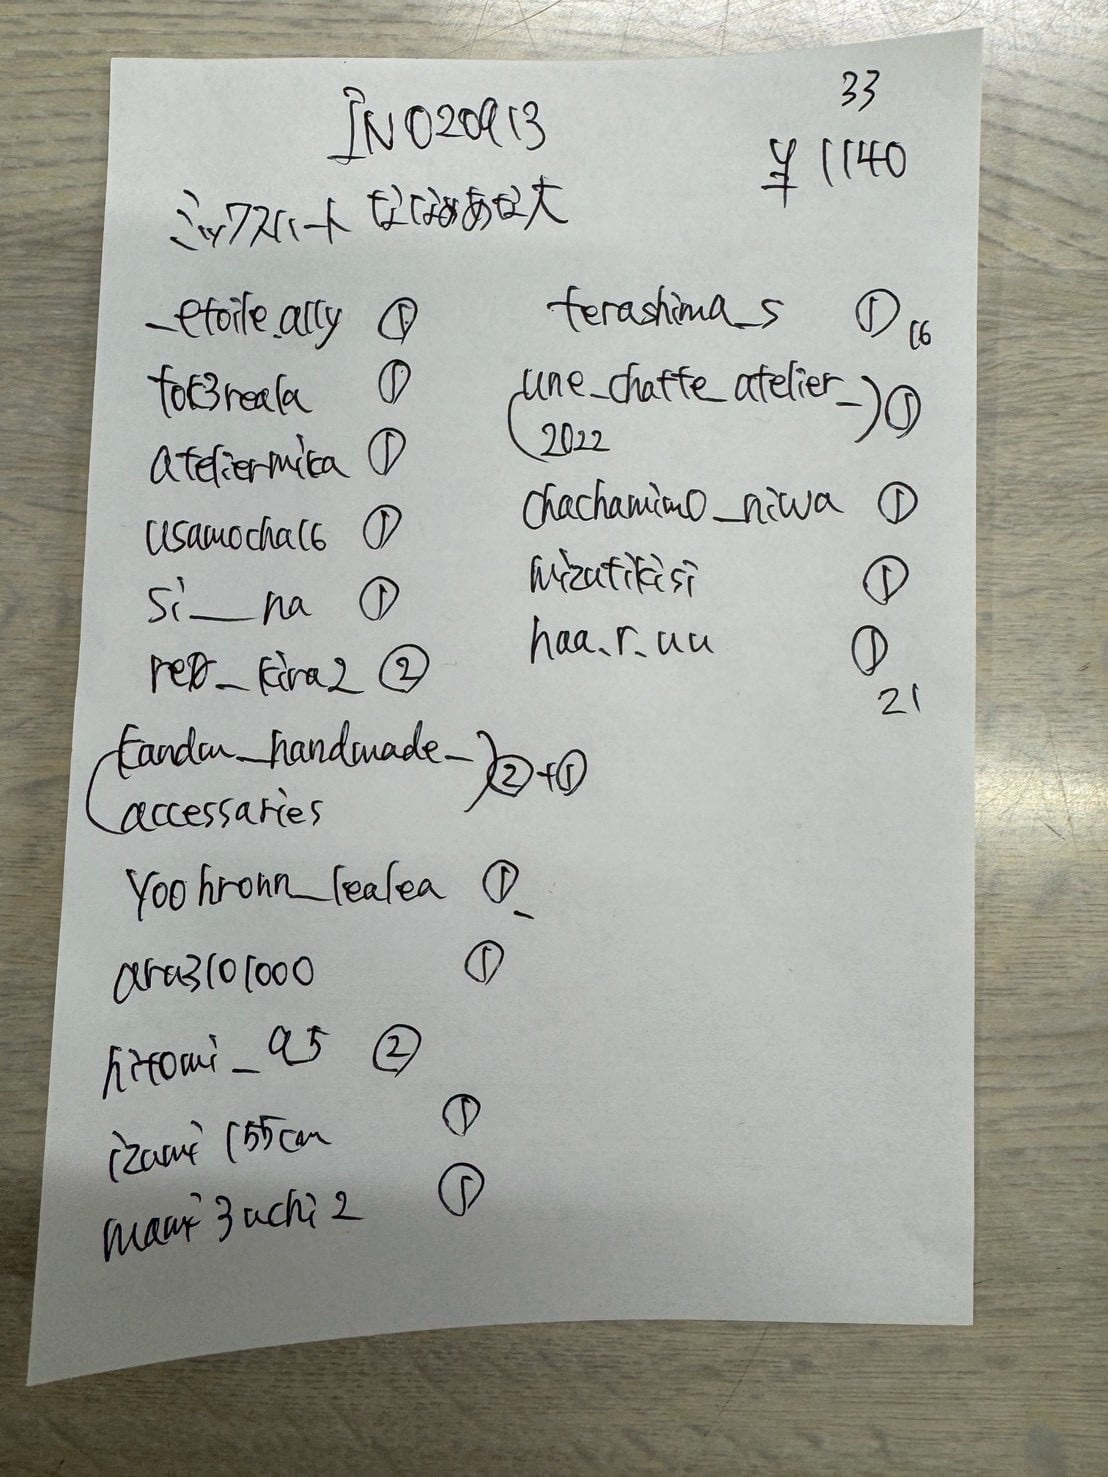 IN020913
33
¥1140
ミックスハート ななめあな大
_etoile.ally ①
tok3reala ①
ateliermika ①
usamocha16 ①
si__na ①
_kira2 ②
(kandm_handmade_
accessaries) ②+①
yoohronn_lealea ①
ara3101000 ①
hitomi_95 ②
izumi155cm ①
mami3uchi2 ①
terashima_s ① 16
(une_chatte_atelier_
2022) ①
chachamimo_niwa ①
mizutikisi ①
haa.r.uu ①
21